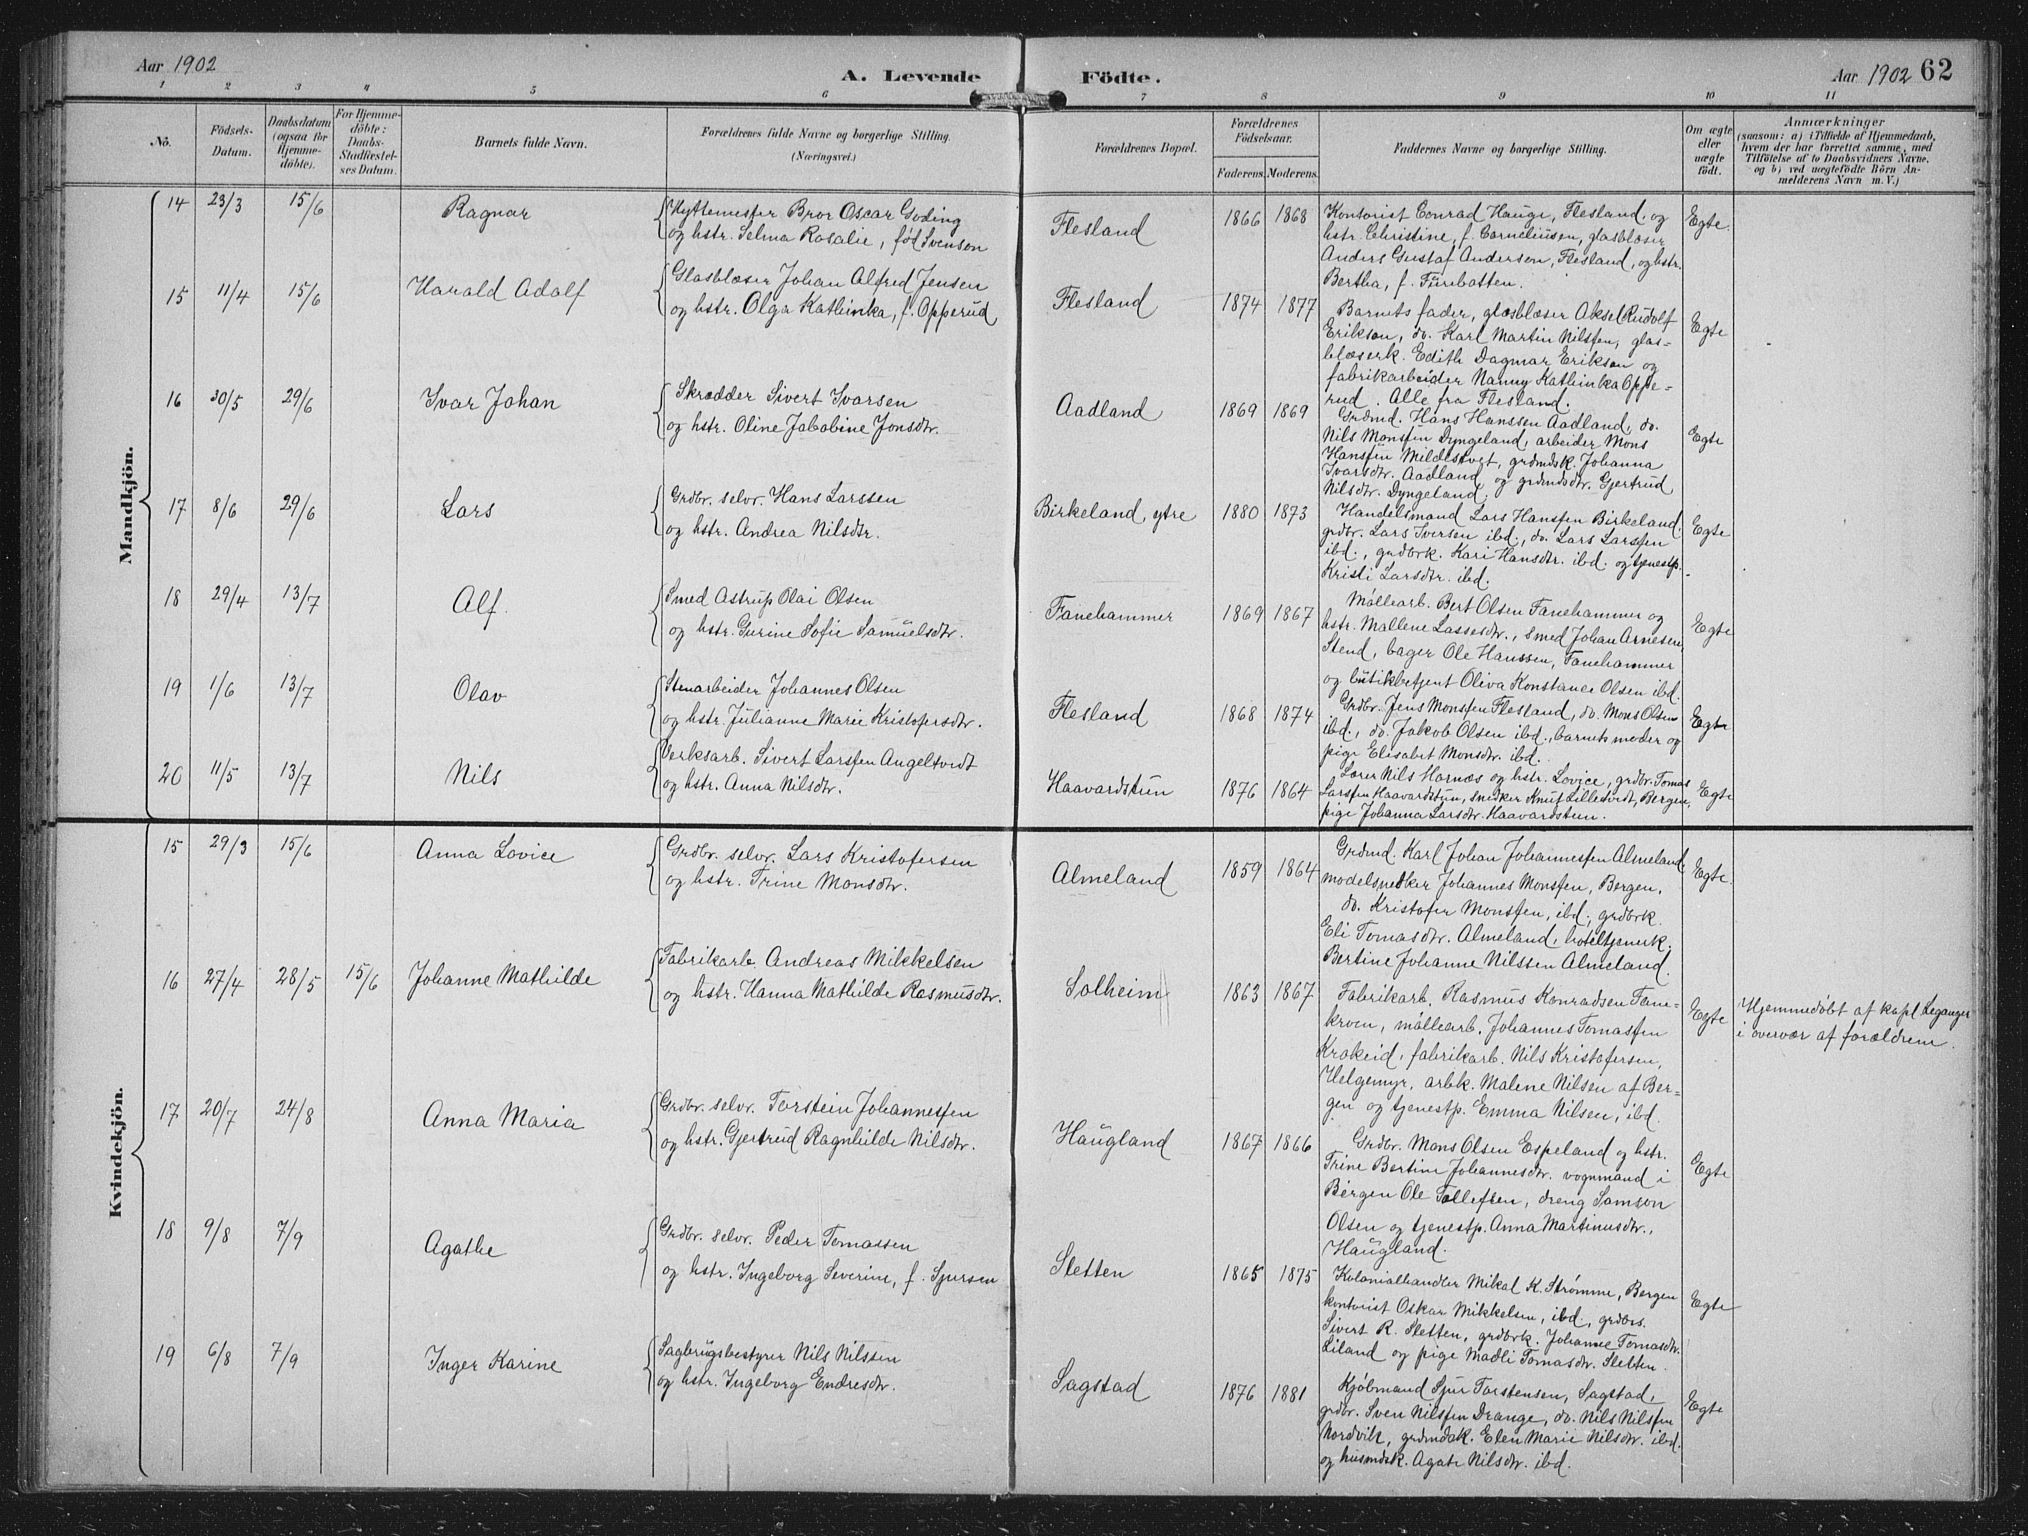 Aar 1902
A. Levende Födte.
Aar 1902 62
1 2 3 4 5 6 7 8 9 10 11
No.
Födsels-
Datum.
Daabsdatum
(ogsaa for
Hjemme-
döbte).
For Hjemme-
döbte:
Daabs-
Stadfæstel-
ses Datum.
Barnets fulde Navn.
Forældrenes fulde Navne og borgerlige Stilling.
(Næringsvei.)
Forældrenes Bopæl.
Forældrenes
Födselsaar.
Faderens. Moderens.
Faddernes Navne og borgerlige Stilling.
Om ægte
eller
uægte
födt.
Anmærkninger
(saasom: a) i Tilfælde af Hjemmedaab,
hvem der har forrettet samme, med
Tilföielse af to Daabsvidners Navne,
og b) ved uægtefödte Börn An-
melderens Navn m. V.)
Mandkjön.
14 23/3 15/6 Ragnar
Hyttemester Bror Oscar Goding
og hstr. Selma Rosalie, fød Svenson
Flesland 1866 1868
Kontorist Conrad Hauge, Flesland, og
hstr. Christine, f. Corneliusen, glasblæser
Anders Gustaf Andersen, Flesland, og hstr.
Bertha, f. Fürebotten.
Egte.
15 11/4 15/6 Harald Adolf
Glasblæser Johan Alfred Jensen
og hstr. Olga Kathinka, f. Opperud
Flesland 1874 1877
Barnets fader, glasblæser Aksel Rudolf
Eriksen, do. Karl Martin Nilssen, glas-
blæserk. Edith Dagmar Eriksen og
fabrikarbeider Nanny Kathinka Oppe-
rud. Alle fra Flesland.
Egte
16 30/5 29/6 Ivar Johan
Skrædder Sivert Ivarsen
og hstr. Oline Jakobine Jonsdtr.
Aadland 1869 1869
Grdmd. Hans Hanssen Aadland, do.
Nils Monssen Dyngeland, arbeider Mons
Hanssen Mildestvgt, grdmdsk. Johanna
Ivarsdtr. Aadland og grdmdsdtr. Gjertrud
Nilsdtr. Dyngeland.
Egte
17 8/6 29/6 Lars
Grdbr. selv. Hans Larssen
og hstr. Andrea Nilsdtr.
Birkeland, ytre 1880 1873
Handelsmand Lars Hanssen Birkeland.
grdbr. Lars Iversen ibd., do. Lars Larssen
ibd., grdbrk. Kari Hansdtr. ibd. og tjenestp.
Kristi Larsdtr. ibd.
Egte
18 29/4 13/7 Alf.
Smed Astrup Olai Olsen
og hstr. Gurine Sofie Samuelsdtr.
Fanehammer 1869 1867
Møllearb. Bert Olsen Fanehammer og
hstr. Mallene Lassesdtr., smed Johan Arnesen,
Stend, bager Ole Hanssen, Fanehammer
og butikbetjent Oliva Konstance Olsen ibd.
Egte
19 1/6 13/7 Olav
Stenarbeider Johannes Olsen
og hstr. Julianne Marie Kristofersdtr.
Flesland 1868 1874
Grdbr. Jens Monssen Flesland, do. Mons Olsen
ibd., do. Jakob Olsen ibd., barnets moder og
pige Elisabet Monsdtr. ibd.
Egte
20 11/5 13/7 Nils
Verksarb. Sivert Larssen Angeltvedt
og hstr. Anna Nilsdtr.
Haavardstun 1876 1864
Lærer Nils Hornæs og hstr. Lovice, grdbr. Tomas
Larssen Haavardstun, snedker Knut Lilletvedt, Bergen,
pige Johanna Larsdtr. Haavardstun.
Egte
Kvindekjön.
15 29/3 15/6 Anna Lovice
Grdbr. selv. Lars Kristofersen
og hstr. Trine Monsdtr.
Almeland 1859 1864
Grdmd. Karl Johan Johannessen Almeland,
modelsnedker Johannes Monssen, Bergen,
do. Kristofer Monssen, ibd., grdbrk.
Eli Tomasdtr. Almeland, hoteltjenerk.
Bertine Johanne Nilssen Almeland.
Egte.
16 27/4 28/5 15/6 Johanne Mathilde
Fabrikarb. Andreas Mikkelsen
og hstr. Hanna Mathilde Rasmusdtr.
Solheim 1863 1867
Fabrikarb. Rasmus Konradsen Fane-
kroen, møllearb. Johannes Tomassen
Krokeid, fabrikarb. Nils Kristofersen,
Helgemyr, arbk. Malene Nilsen af Ber-
gen og tjenestp. Emma Nilsen, ibd.
Egte
Hjemmedøbt af kapl. Leganger
i overvær af forældrene.
17 20/7 24/8 Anna Maria
Grdbr. selv. Torstein Johannessen
og hstr. Gjertrud Ragnhilde Nilsdtr.
Haugland 1867 1866
Grdbr. Mons Olsen Espeland og hstr.
Trine Bertine Johannesdtr. vognmand i
Bergen Ole Tollefsen, dreng Samson
Olsen og tjenestp. Anna Martinusdtr.,
Haugland.
Egte
18 9/8 7/9 Agathe
Grdbr. selv. Peder Tomassen
og hstr. Ingeborg Severine, f. Sjursen
Sletten 1865 1875
Kolonialhandler Mikal K. Strømme, Bergen
kontorist Oskar Mikkelsen, ibd, grdbrs.
Sivert R. Sletten, grdbrk. Johanne Tomasdtr.
Liland og pige Madli Tomasdtr. Sletten.
Egte
19 6/8 7/9 Inger Karine
Sagbrugsbestyrer Nils Nilssen
og hstr. Ingeborg Endresdtr.
Sagstad 1876 1881
Kjøbmand Sjur Torstensen, Sagstad,
grdbr. Sven Nilssen Drange, do. Nils Nilssen
Nordvik, grdmdsk. Elen Marie Nilsdtr. ibd.
og husmdsk. Agate Nilsdtr. ibd.
Egte